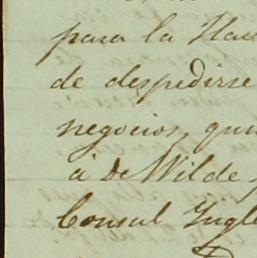 para la Hav
de despedirse
negocios, qu
á DeWilde
Consul Ingl